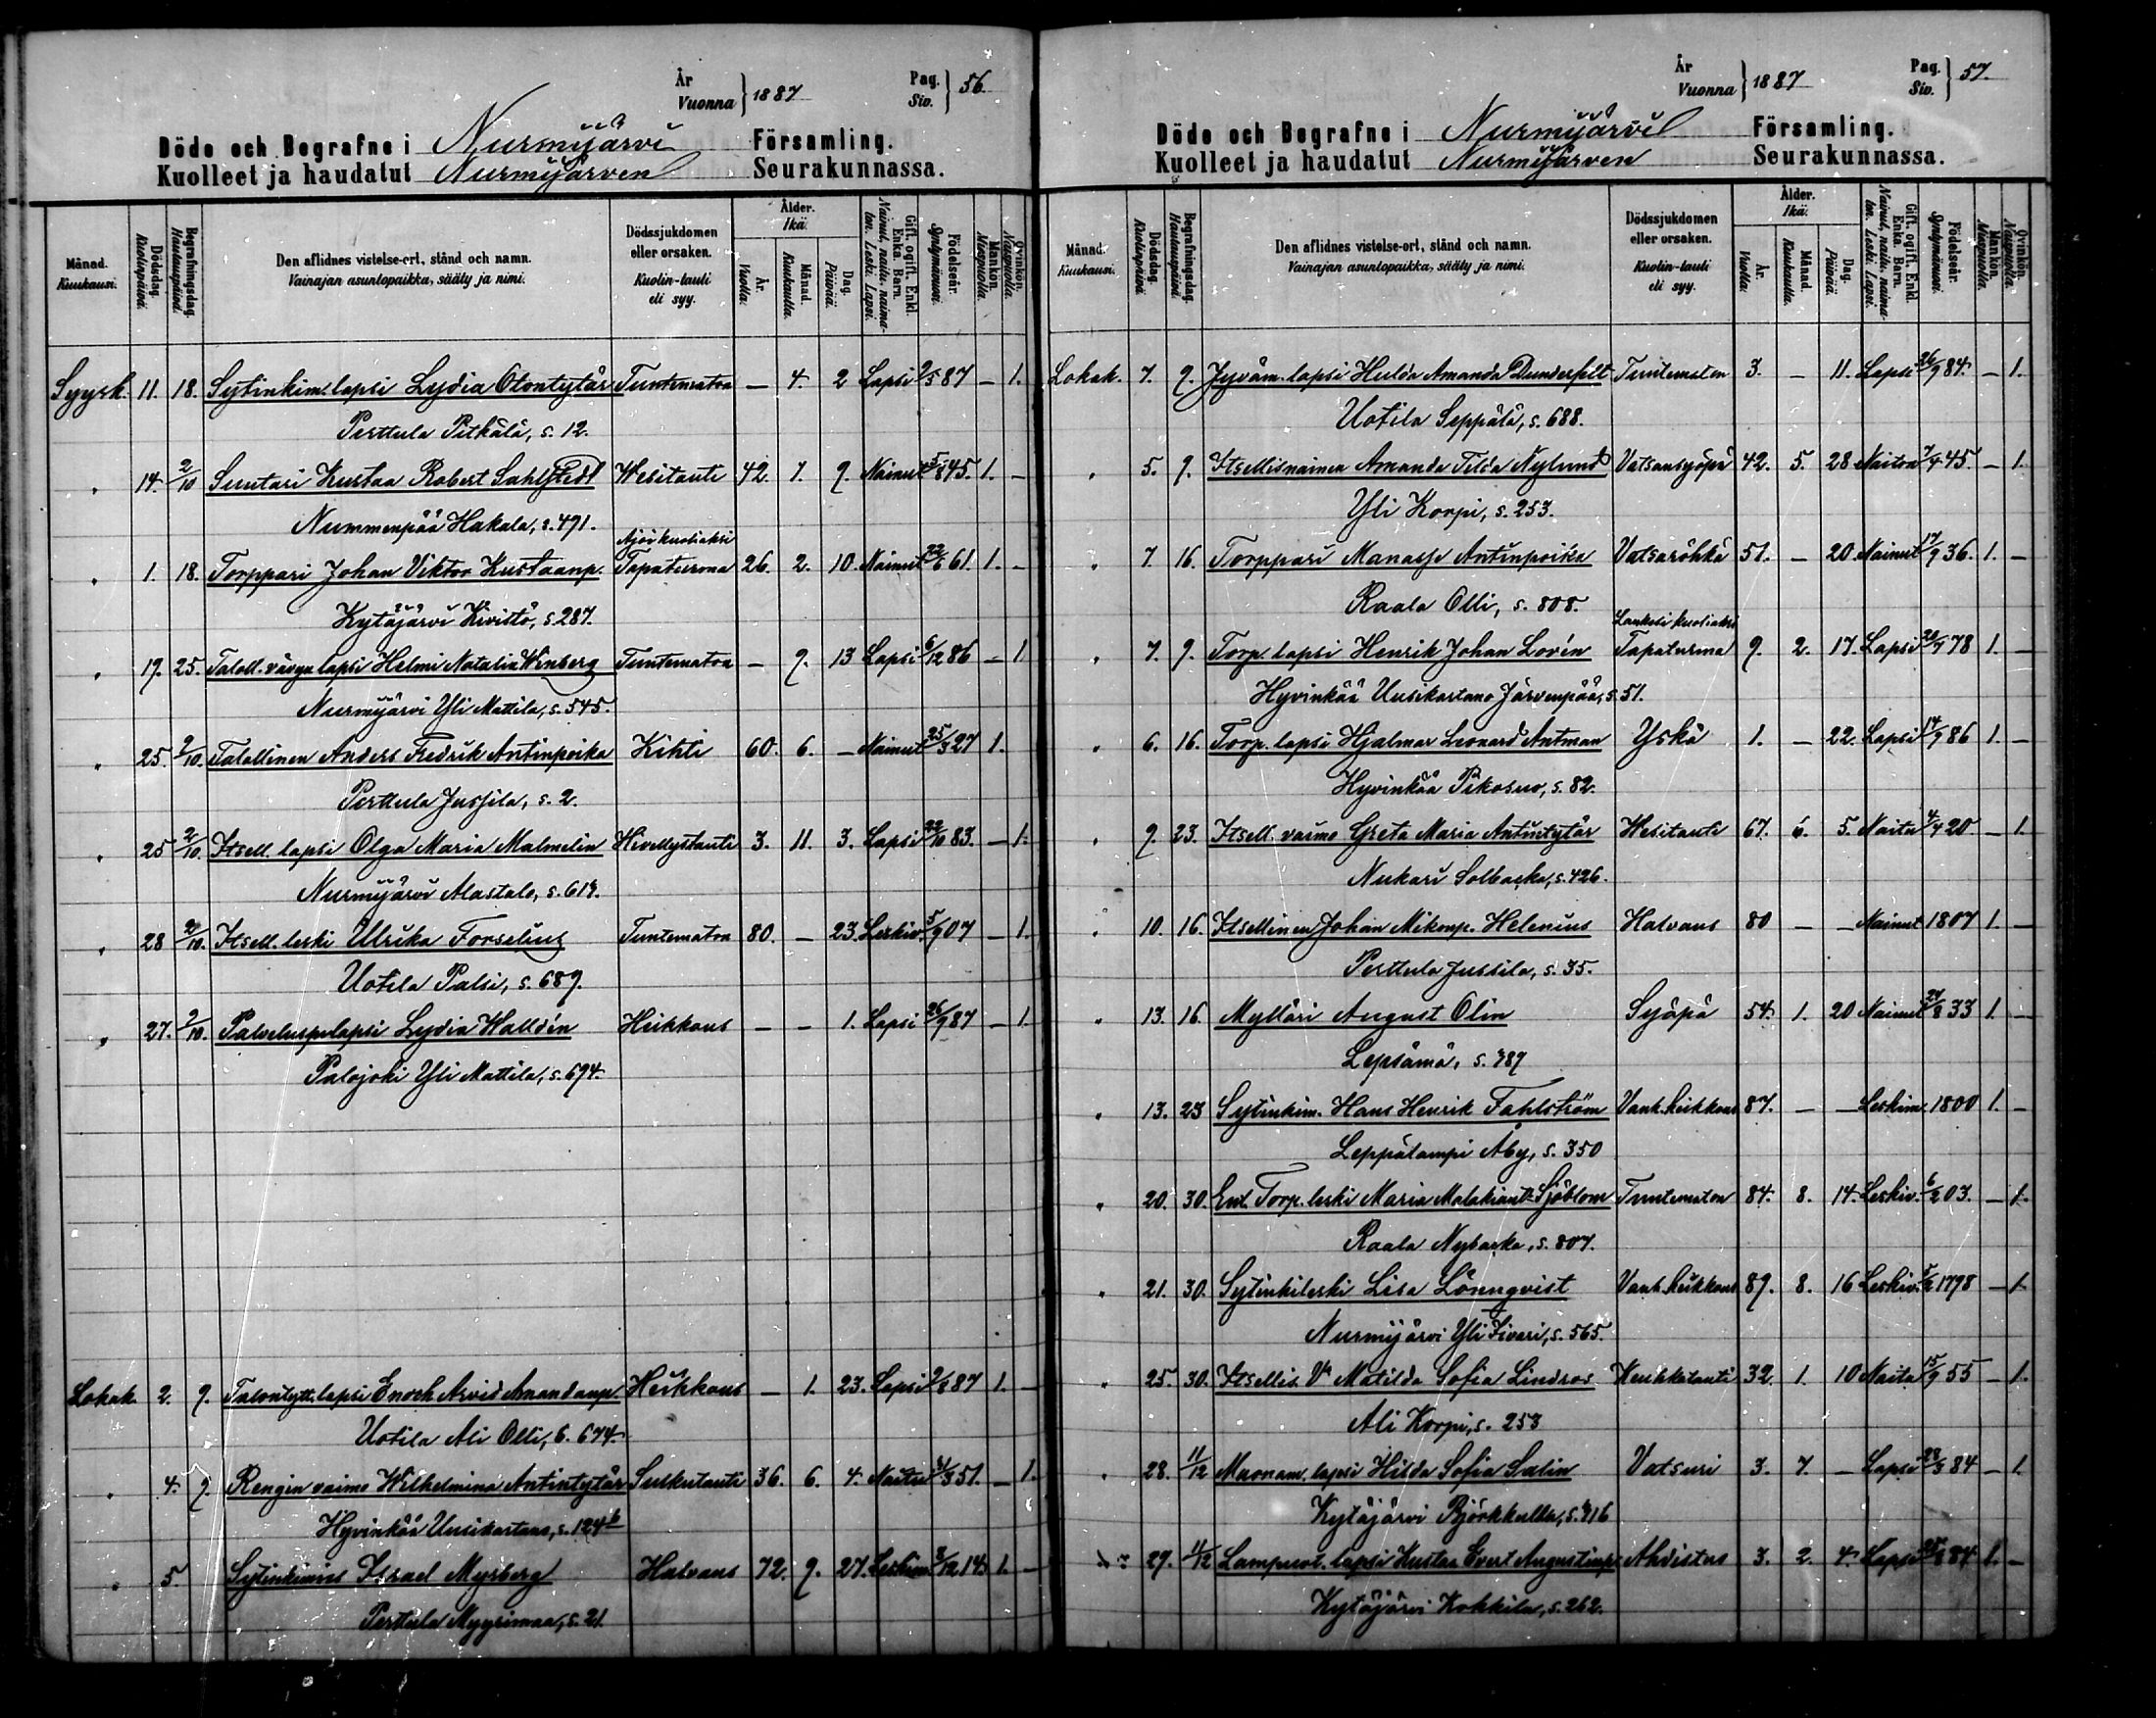 År Vuonna } 1887 Pag. Siv. } 56.
Döde och Begrafne i Nurmijärvi Församling.
Kuolleet ja haudatut Nurmijärven Seurakunnassa.
Månad. Kuukausi. Dödsdag. Kuolinpäivä. Begrafningsdag. Hautauspäivä. Den aflidnes vistelse-ort, stånd och namn. Vainajan asuntopaikka, sääty ja nimi. Dödssjukdomen eller orsaken. Kuolin-tauti eli syy. Ålder. Ikä. År. Vuotta. Månad. Kuukautta. Dag. Päivää. Gift, ogift. Enkl. Enka. Barn. Nainut, naitu, naimaton. Leski. Lapsi. Födelseår. Syntymävuosi. Mankön. Miespuolia. Qvinkön. Naispuolia.
Syysk. 11. 18. Sytinkim. lapsi Lydia Otontytär Tuntematon — 4. 2 Lapsi 9/5 87 — 1.
Perttula Pitkälä, s. 12.
" 14. 2/10 Suutari Kustaa Robert Sahlstedt Wesitauti 42. 1. 9. Nainut 5/8 45. 1. —
Nummenpää Hakala, s. 491.
Ajoi kuoliaksi
" 1. 18. Torppari Johan Viktor Kustaanp. Tapaturma 26. 2. 10. Nainut 22/6 61. 1. —
Kytäjärvi Kivistö, s. 287.
" 19. 25. Taloll. vävyn lapsi Helmi Natalia Winberg Tuntematon — 9. 13 Lapsi 6/12 86 — 1
Nurmijärvi Yli Mattila, s. 545.
" 25. 2/10. Talollinen Anders Fredrik Antinpoika Kihti 60. 6. — Nainut 25/3 27 1.
Perttula Jussila, s. 2.
" 25 2/10. Itsell. lapsi Olga Maria Malmelin Hivellystauti 3. 11. 3. Lapsi 22/10 83. — 1.
Nurmijärvi Alastalo, s. 619.
" 28 2/10. Itsell. leski Ulrika Forselius Tuntematon 80. — 23. Leskiv. 5/9 07 — 1.
Uotila Palsi, s. 689.
" 27. 2/10. Palveluspu lapsi Lydia Walldén Heikkous — — 1. Lapsi 26/9 87 — 1
Palojoki Yli Mattila, s. 694.
Lokak. 2. 9. Talontytt. lapsi Enosh Arvid Amandanp. Heikkous — 1. 23. Lapsi 9/8 87 1. —
Uotila Ali Olli, s. 674.
" 4. 9. Rengin vaimo Wilhelmina Antintytär Suskutauti 36. 6. 4. Naitu 31/3 51. — 1.
Hyvinkää Uusikartano, s. 124 b
" 5. Sytinkimies Israel Myrberg Halvaus 72. 9. 27. Leskim. 8/12 14. 1. —
Perttula Myyrimaa, s. 21.
År Vuonna } 1887 Pag. Siv. } 57.
Döde och Begrafne i Nurmijärvi Församling.
Kuolleet ja haudatut Nurmijärven Seurakunnassa.
Månad. Kuukausi. Dödsdag. Kuolinpäivä. Begrafningsdag. Hautauspäivä. Den aflidnes vistelse-ort, stånd och namn. Vainajan asuntopaikka, sääty ja nimi. Dödssjukdomen eller orsaken. Kuolin-tauti eli syy. Ålder. Ikä. År. Vuotta. Månad. Kuukautta. Dag. Päivää. Gift, ogift. Enkl. Enka. Barn. Nainut, naitu, naimaton. Leski. Lapsi. Födelseår. Syntymävuosi. Mankön. Miespuolia. Qvinkön. Naispuolia.
Lokak. 7. 9. Jyväm. lapsi Hulda Amanda Dunderfelt Tuntematon 3. — 11. Lapsi 26/9 84. — 1.
Uotila Seppälä, s. 688.
" 5. 9. Itsellisnainen Amanda Tilda Nylund Vatsansyöpä 42. 5. 28 Naiton 7/4 45. — 1.
Yli Korpi, s. 253.
" 7. 16. Torppari Manasse Antinpoika Vatsaröhkä 51. — 20. Nainut 17/9 36. 1. —
Raala Olli, s. 808.
Lankesi kuoliaksi
" 7. 9. Torp. lapsi Henrik Johan Lovén Tapaturma 9. 2. 17. Lapsi 20/7 78 1. —
Hyvinkää Uusikartano Järvenpää, s. 51.
" 6. 16. Torp. lapsi Hjalmar Leonard Antman Yskä 1. — 22. Lapsi 14/9 86 1. —
Hyvinkää Pikosuo, s. 82.
" 9. 23. Itsell. vaimo Greta Maria Antintytär Wesitauti 67. 6. 5. Naitu 4/4 20 — 1.
Nukari Solbacka, s. 426.
" 10. 16. Itsellinen Johan Mikonp. Helenius Halvaus 80 — — Nainut 1807 1. —
Perttula Jussila, s. 35.
" 13. 16. Mylläri August Olin Syöpä 54. 1. 20 Nainut 24/8 33 1. —
Lepsämä, s. 387
" 13. 23 Sytinkim. Hans Henrik Fahlström Vanh. heikkous 87. — — Leskim. 1800 1. —
Leppälampi Åby, s. 350
" 20. 30. Ent. Torp. leski Maria Malakiant. Sjöblom Tuntematon 84. 8. 14. Leskiv. 6/2 03. — 1.
Raala Nybacka, s. 807.
" 21. 30. Sytinkileski Lisa Lönnqvist Vanh. heikkous 89. 8. 16 Leskiv. 5/2 1798 — 1.
Nurmijärvi Yli Iivari, s. 565.
" 25. 30. Itsellis V:o Matilda Sofia Lindros Keuhkotauti 32. 1. 10 Naitu 15/9 55 — 1.
Ali Korpi, s. 253
" 28. 11/12 Muonam. lapsi Hilda Sofia Salin Vatsuri 3. 7. — Lapsi 28/3 84 — 1.
Kytäjärvi Björkkulla, s. 316
" 29. 11/12 Lampuot. lapsi Kustaa Evert Augustinp. Ahdistus 3. 2. 4. Lapsi 25/8 84 1. —
Kytäjärvi Kokkila, s. 262.